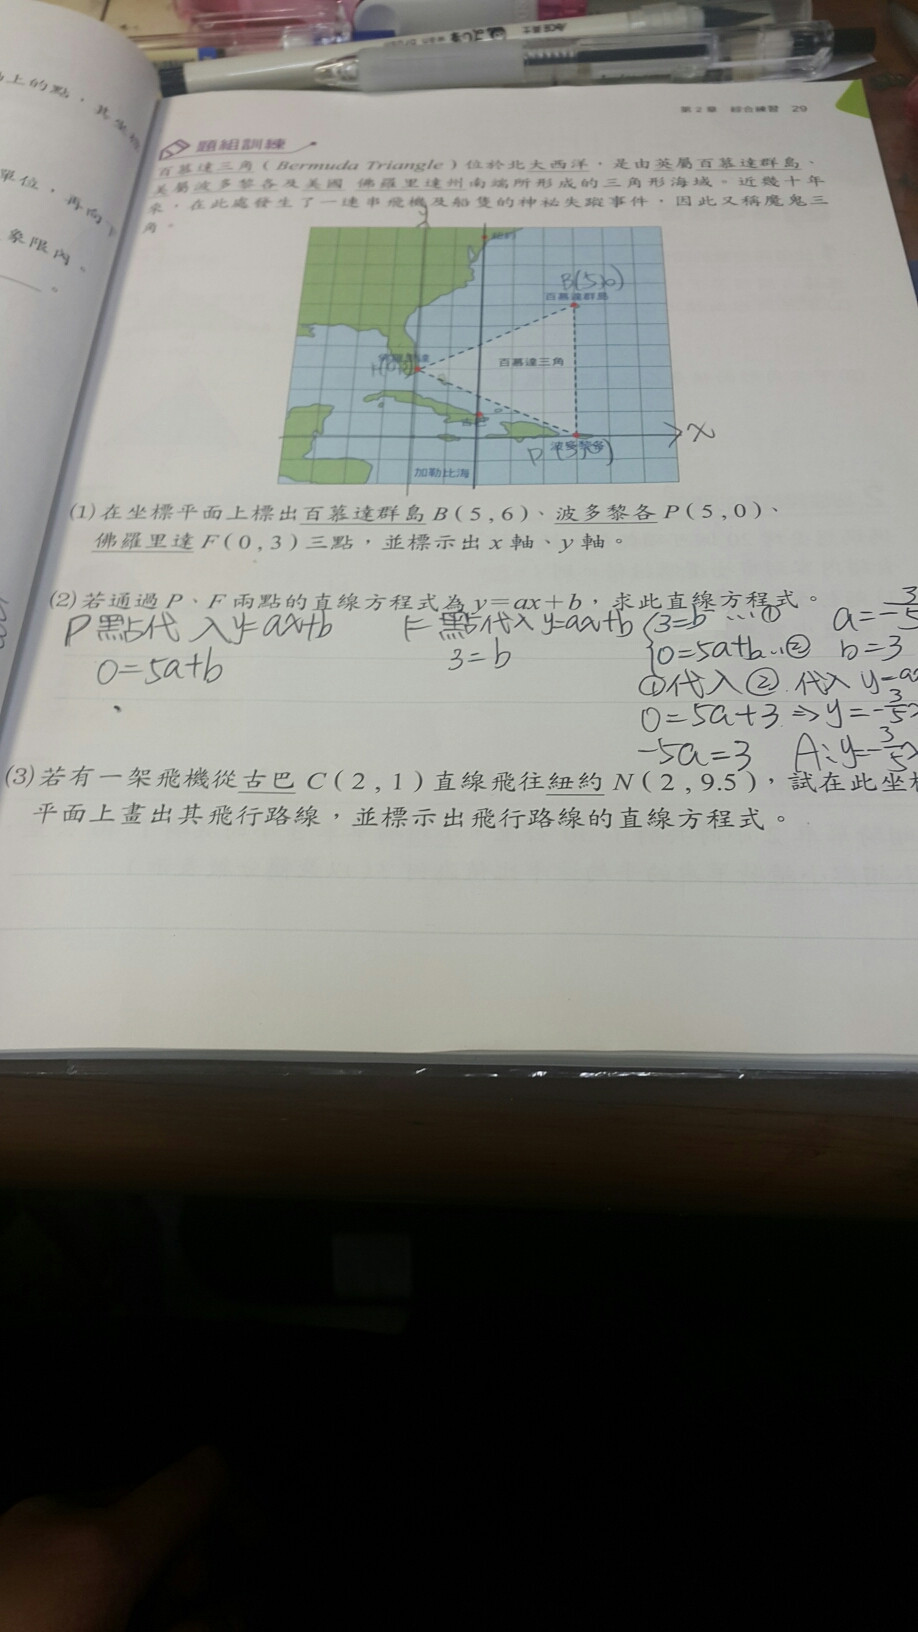 上的點，其坐標
單位，再向下
象限內。
。
第2章 綜合練習 29
題組訓練
百慕達三角（Bermuda Triangle）位於北大西洋，是由英屬百慕達群島、
美屬波多黎各及美國 佛羅里達州南端所形成的三角形海域。近幾十年
來，在此處發生了一連串飛機及船隻的神祕失蹤事件，因此又稱魔鬼三
角。
y
紐約
B(5,6)
百慕達群島
百慕達三角
古巴
x
波多黎各
加勒比海
(1)在坐標平面上標出百慕達群島B(5,6)、波多黎各P(5,0)、
佛羅里達F(0,3)三點，並標示出x軸、y軸。
(2)若通過P、F兩點的直線方程式為y=ax+b，求此直線方程式。
P點代入y=ax+b
0=5a+b
F點代入y=ax+b
3=b
3=b …①
0=5a+b…②
①代入②
0=5a+3
-5a=3
a=-3/5
b=3
代入y=a
⇒y=-3/5
A:y=-3/5
(3)若有一架飛機從古巴C(2,1)直線飛往紐約N(2,9.5)，試在此坐標
平面上畫出其飛行路線，並標示出飛行路線的直線方程式。